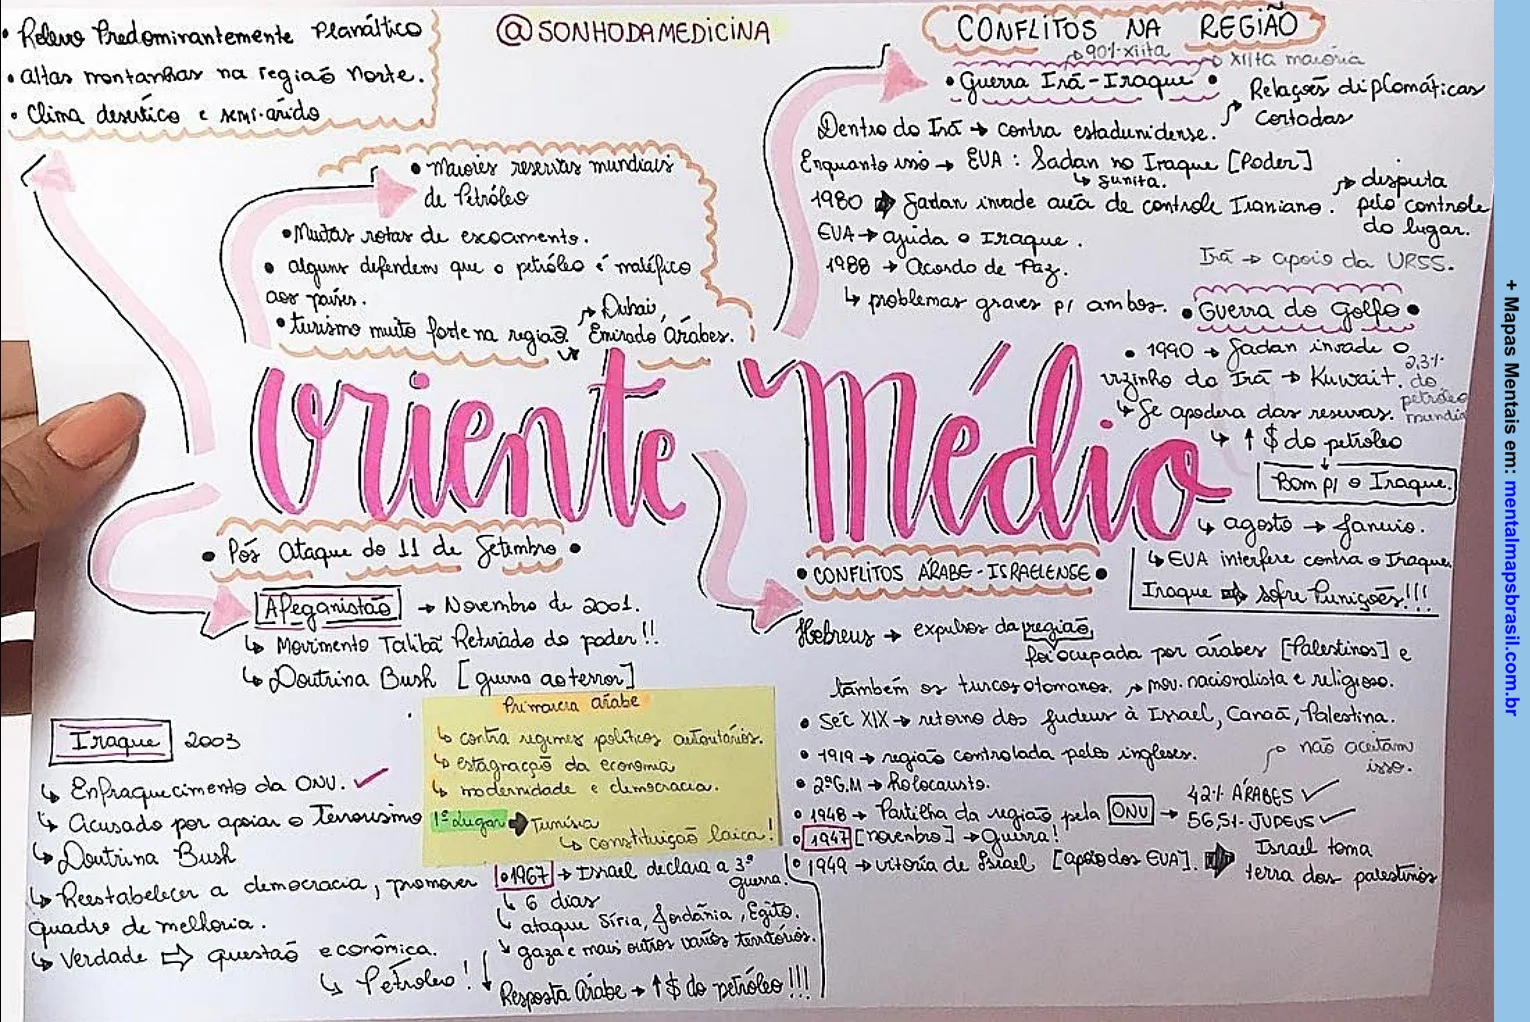 • Relevo Predominantemente Planáltico
• altas montanhas na região Norte.
• Clima desértico e semi-árido
@SONHODAMEDICINA
• Maiores reservas mundiais
de Petróleo
• Muitas rotas de escoamento.
• alguns defendem que o petróleo é maléfico
aos países.
• turismo muito forte na região.
Dubai,
Emirado Árabes.
CONFLITOS NA REGIÃO
90% xiita
xiita maioria
• Guerra Irã-Iraque •
Relações diplomáticas
cortadas
Dentro do Irã → contra estadunidense.
Enquanto isso → EUA: Sadan no Iraque [Poder]
↳ sunita.
1980 ➡ Sadan invade área de controle Iraniano.
disputa
pelo controle
do lugar.
EUA → ajuda o Iraque.
Irã → apoio da URSS.
1988 → Acordo de Paz.
↳ problemas graves p/ ambos.
• Guerra do Golfo •
• 1990 → Sadan invade o
vizinho do Irã → Kuwait.
2,3%
do
petróleo
mundial
↳ Se apodera das reservas.
↳ ↑ $ do petróleo
Bom p/ o Iraque.
↳ agosto → Janeiro.
↳ EUA interfere contra o Iraque
Iraque ⇨ Sofre Punições!!!
Oriente Médio
• Pós Ataque do 11 de Setembro •
Afeganistão → Novembro de 2001.
↳ Movimento Talibã Retirado do poder!!
↳ Doutrina Bush [guerra ao terror]
Iraque 2003
↳ Enfraquecimento da ONU.
↳ Acusado por apoiar o Terrorismo
↳ Doutrina Bush
↳ Reestabelecer a democracia, promover
quadro de melhoria.
↳ Verdade ⇨ questão econômica.
↳ Petróleo!
Primavera árabe
↳ contra regimes políticos autoritários.
↳ estagnação da economia
↳ modernidade e democracia.
1º Lugar ➡ Tunísia
↳ constituição laica!
• CONFLITOS ÁRABE-ISRAELENSE •
Hebreus → expulsos da região,
foi ocupada por árabes [Palestinos] e
também os turcos otomanos.
→ mov. nacionalista e religioso.
• Séc XIX → retorno dos Judeus à Israel, Canaã, Palestina.
• 1919 → região controlada pelos ingleses.
não aceitam
isso.
• 2ªG.M → Holocausto.
• 1948 → Partilha da região pela ONU →
42% ÁRABES ✓
56,5% JUDEUS ✓
• 1947 [novembro] → Guerra!
• 1949 → vitória de Israel [apoio dos EUA]. ➡
Israel toma
terra dos palestinos
• 1967 → Israel declara a 3ª
guerra.
↳ 6 dias
↳ ataque Síria, Jordânia, Egito.
↳ gaza e mais outros vários territórios.
Resposta Árabe → ↑ $ do petróleo!!!
+ Mapas Mentais em: mentalmapsbrasil.com.br